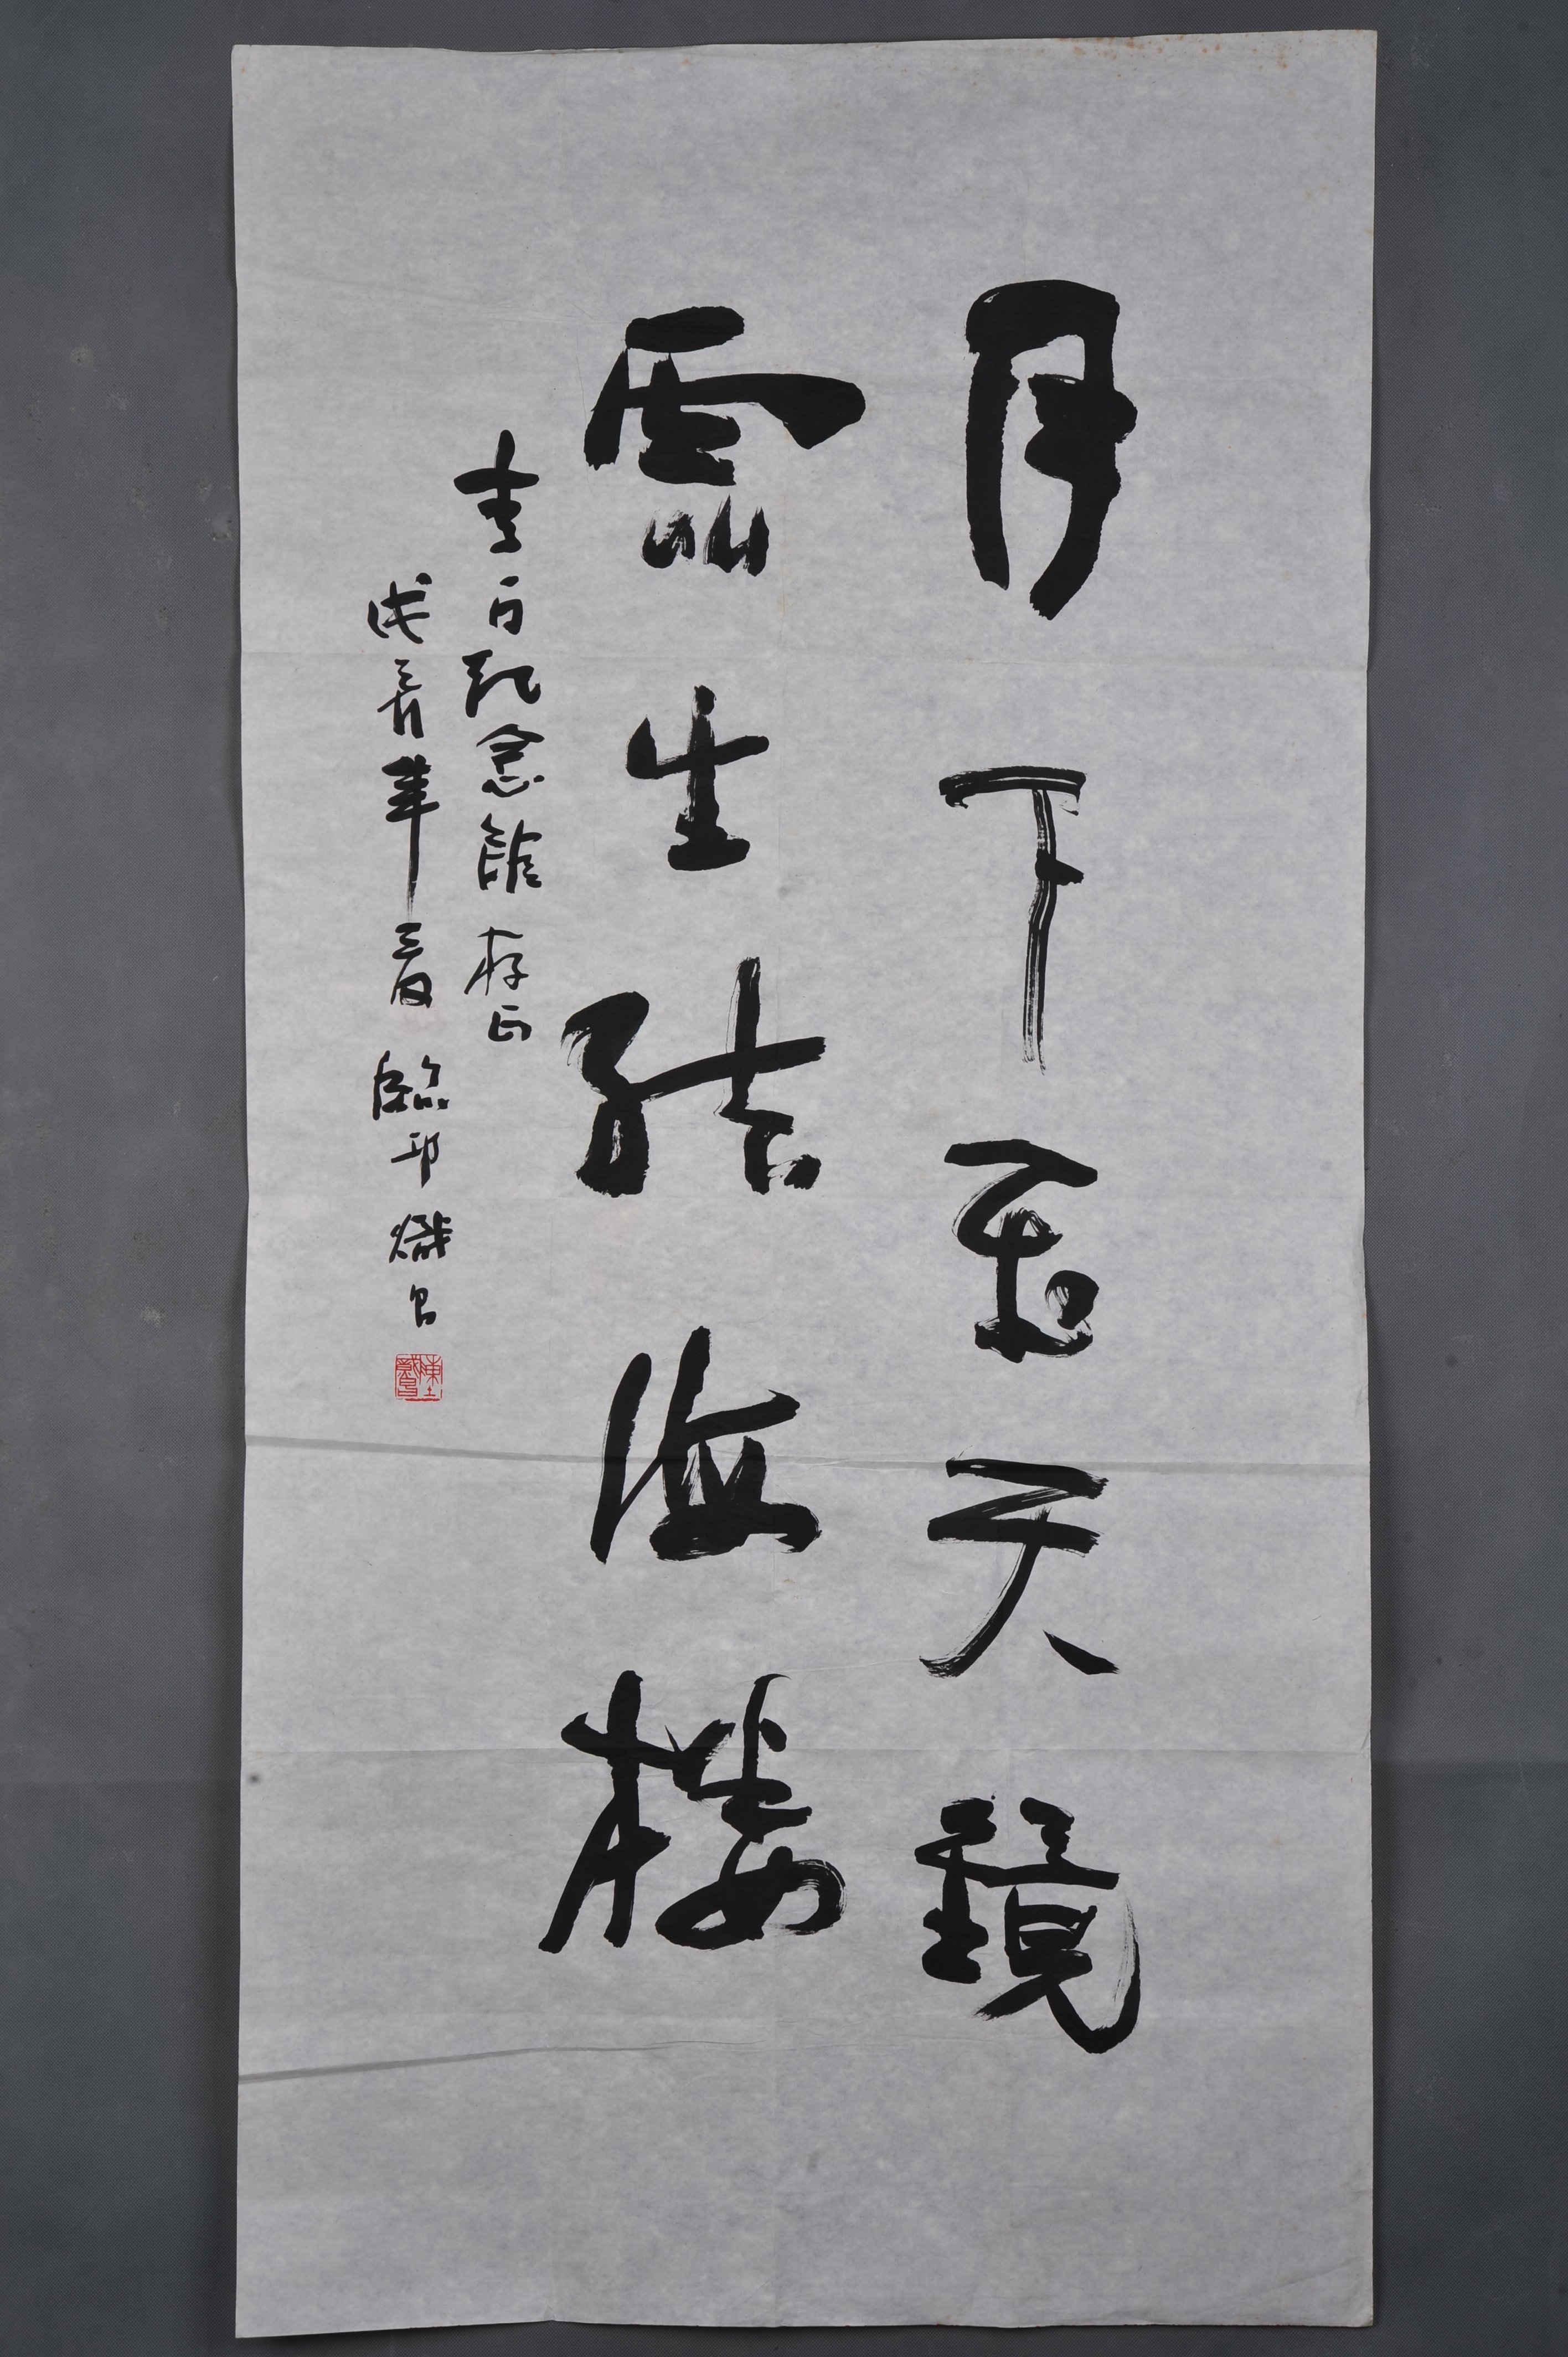 月下飛天鏡
雲生結海樓
李白紀念館存正
戊辰年夏 臨邛